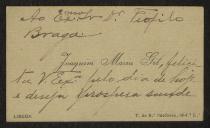 Ao Ex.mo Sr. Dr. Teofilo
Braga
Joaquim Maria Gil, felici
ta V Ex.ª pelo dia de hoje
e deseja prospera saude
LISBOA